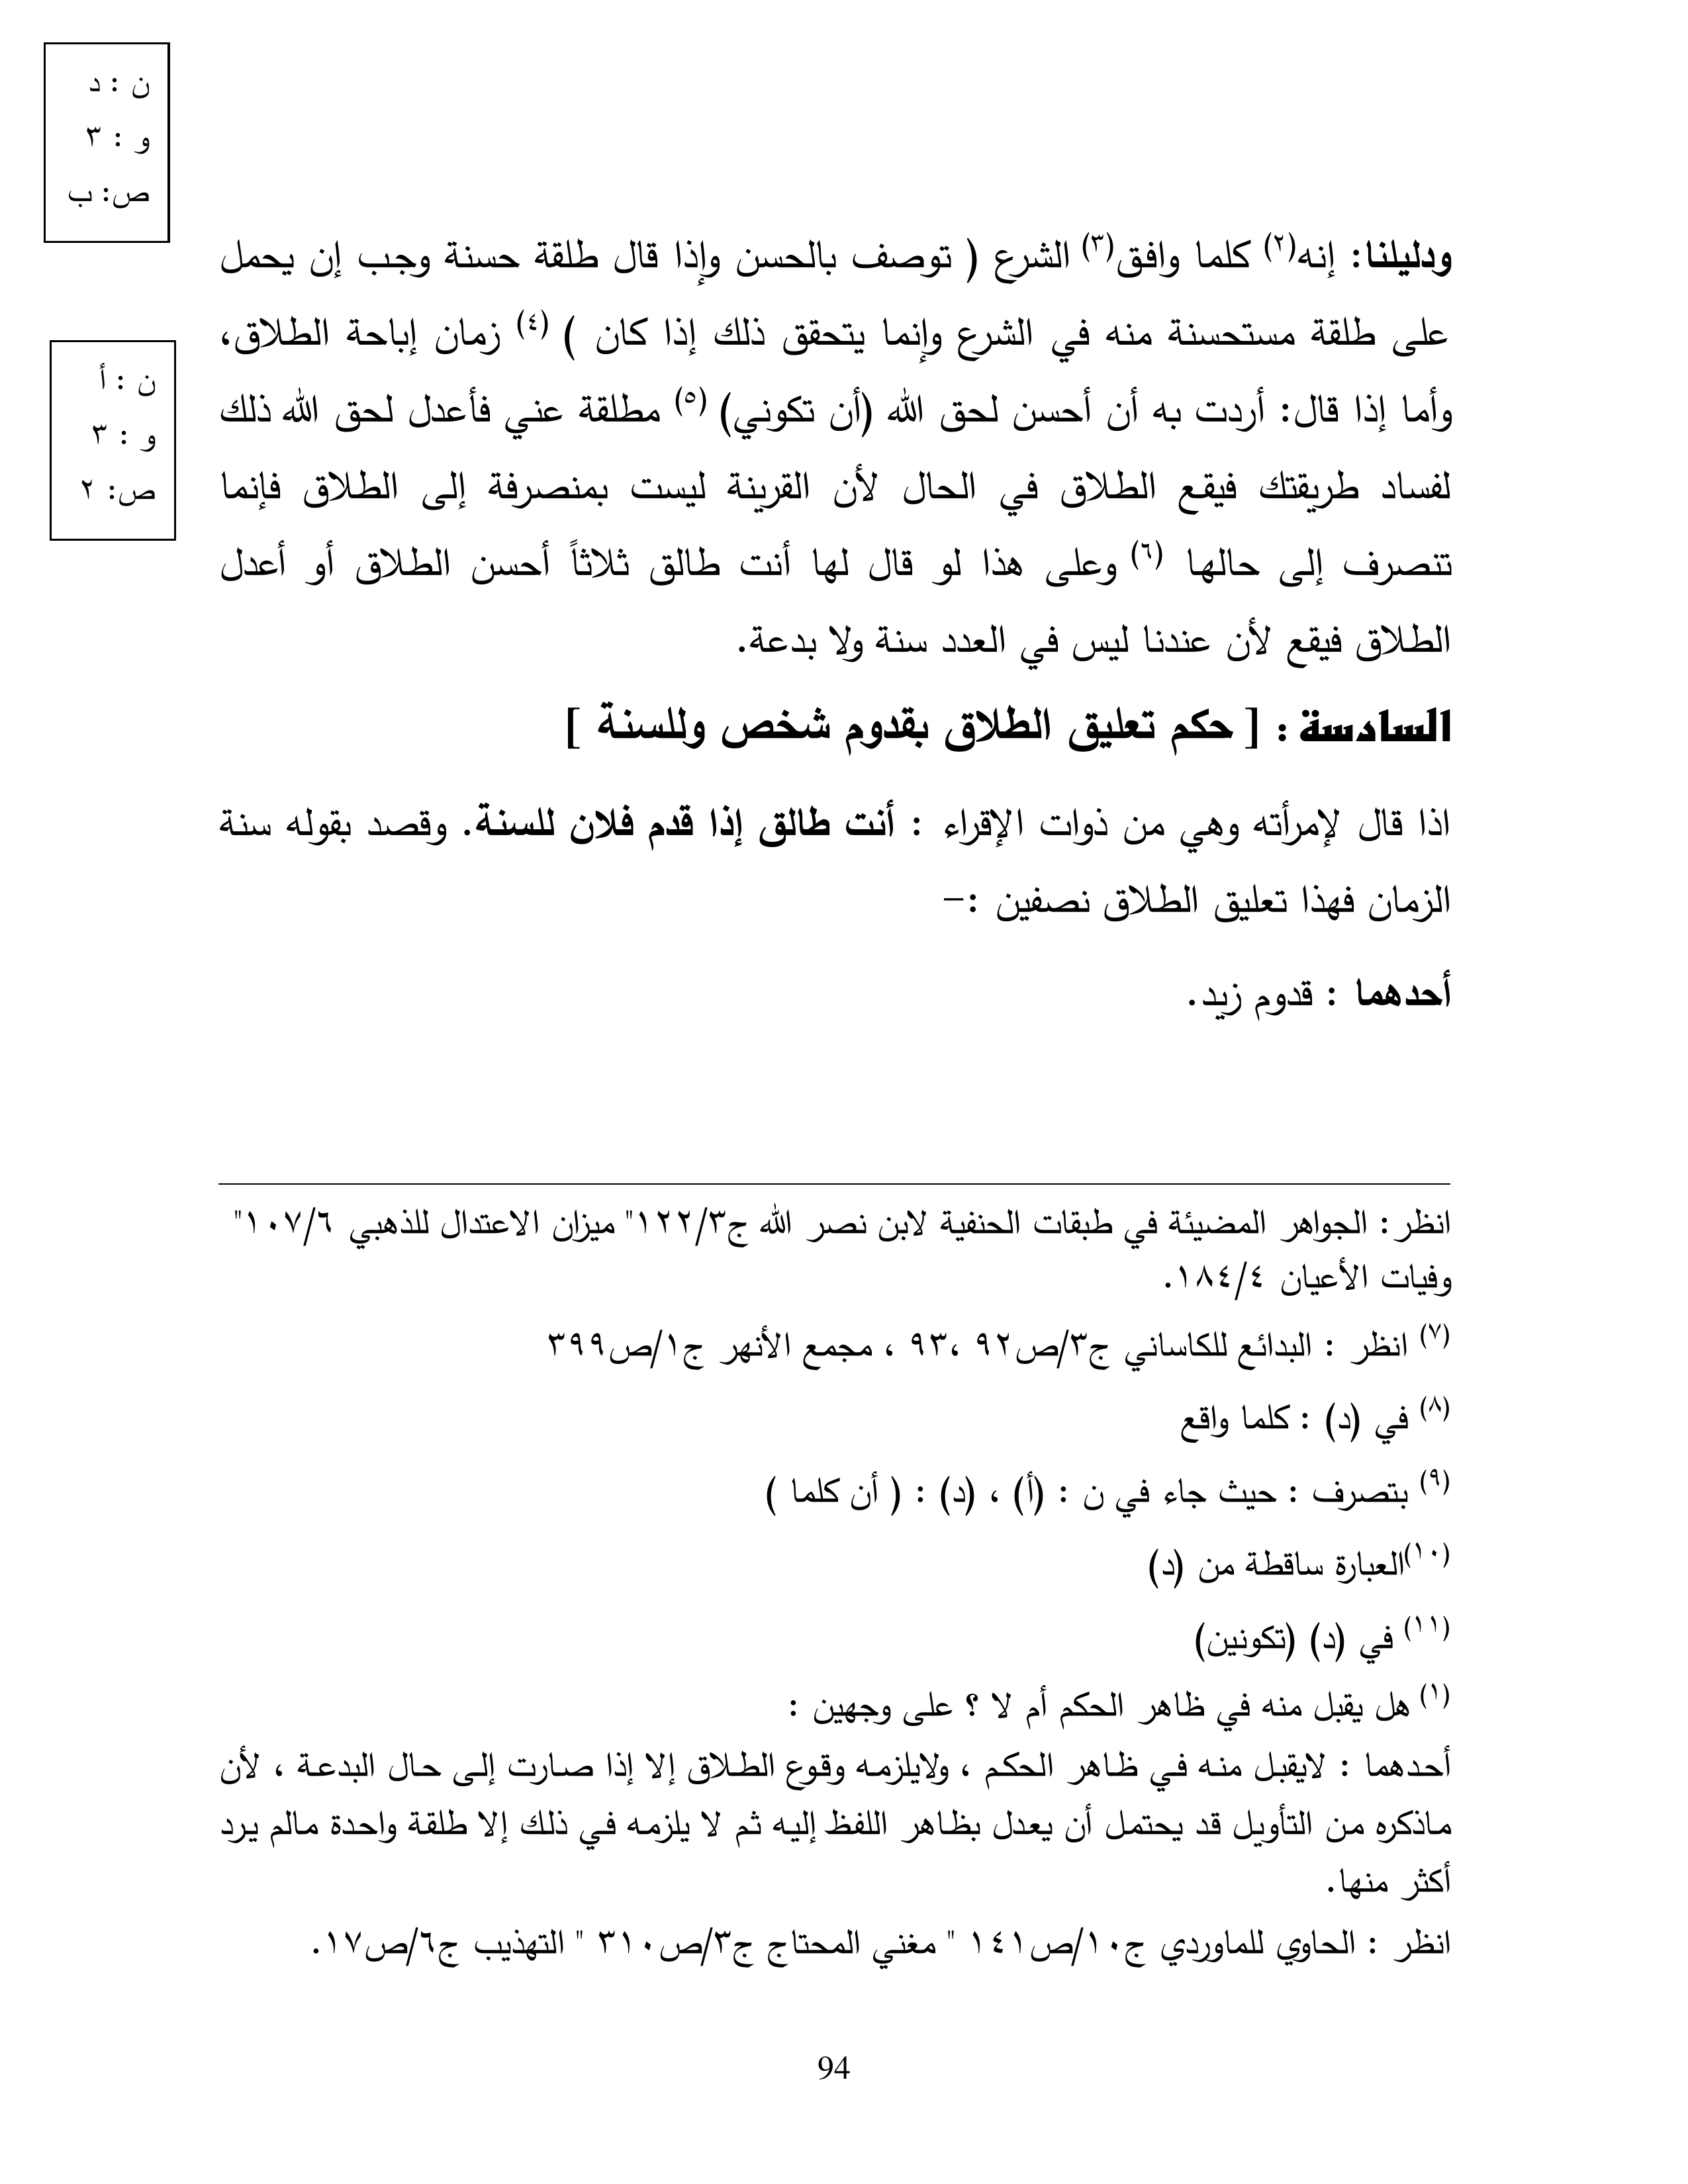 ن : د
و : ٣
ص: ب
ودليلنا: إنه(٢) كلما وافق(٣) الشرع ( توصف بالحسن وإذا قال طلقة حسنة وجب إن يحمل
على طلقة مستحسنة منه في الشرع وإنما يتحقق ذلك إذا كان ) (٤) زمان إباحة الطلاق،
ن : أ
و : ٣
ص: ٢
وأما إذا قال: أردت به أن أحسن لحق الله (أن تكوني) (٥) مطلقة عني فأعدل لحق الله ذلك
لفساد طريقتك فيقع الطلاق في الحال لأن القرينة ليست بمنصرفة إلى الطلاق فإنما
تنصرف إلى حالها (٦) وعلى هذا لو قال لها أنت طالق ثلاثاً أحسن الطلاق أو أعدل
الطلاق فيقع لأن عندنا ليس في العدد سنة ولا بدعة.
السادسة : [ حكم تعليق الطلاق بقدوم شخص وللسنة ]
اذا قال لإمرأته وهي من ذوات الإقراء : أنت طالق إذا قدم فلان للسنة. وقصد بقوله سنة
الزمان فهذا تعليق الطلاق نصفين :-
أحدهما : قدوم زيد.
انظر: الجواهر المضيئة في طبقات الحنفية لابن نصر الله ج١٢٢/٣" ميزان الاعتدال للذهبي ١٠٧/٦"
وفيات الأعيان ١٨٤/٤.
(٧) انظر : البدائع للكاساني ج٣/ص٩٢ ،٩٣ ، مجمع الأنهر ج١/ص٣٩٩
(٨) في (د) : كلما واقع
(٩) بتصرف : حيث جاء في ن : (أ) ، (د) : ( أن كلما )
(١٠)العبارة ساقطة من (د)
(١١) في (د) (تكونين)
(١) هل يقبل منه في ظاهر الحكم أم لا ؟ على وجهين :
أحدهما : لايقبل منه في ظاهر الحكم ، ولايلزمه وقوع الطلاق إلا إذا صارت إلى حال البدعة ، لأن
ماذكره من التأويل قد يحتمل أن يعدل بظاهر اللفظ إليه ثم لا يلزمه في ذلك إلا طلقة واحدة مالم يرد
أكثر منها.
انظر : الحاوي للماوردي ج١٠/ص١٤١ " مغني المحتاج ج٣/ص٣١٠ " التهذيب ج٦/ص١٧.
94